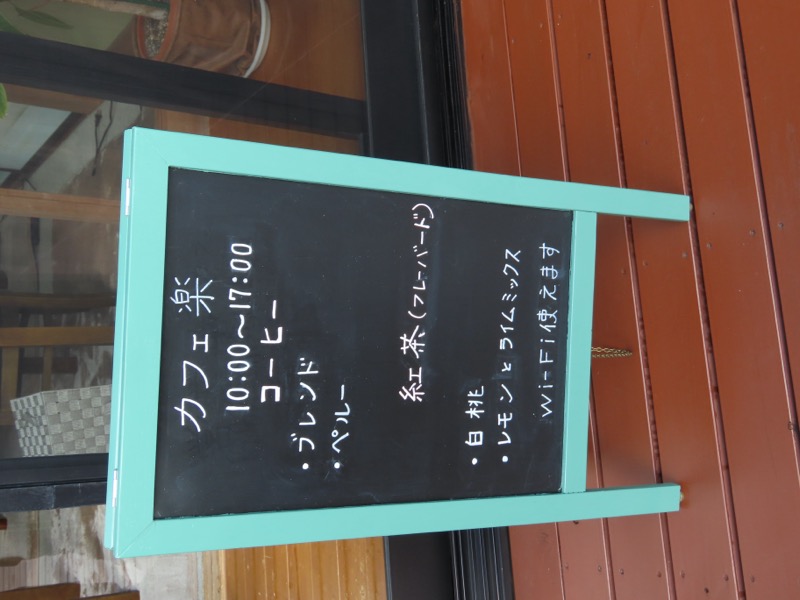 カフェ 楽
10:00～17:00
コーヒー
・ブレンド
・ペルー
紅茶(フレーバード)
・白桃
・レモンとライムミックス
Wi-Fi使えます